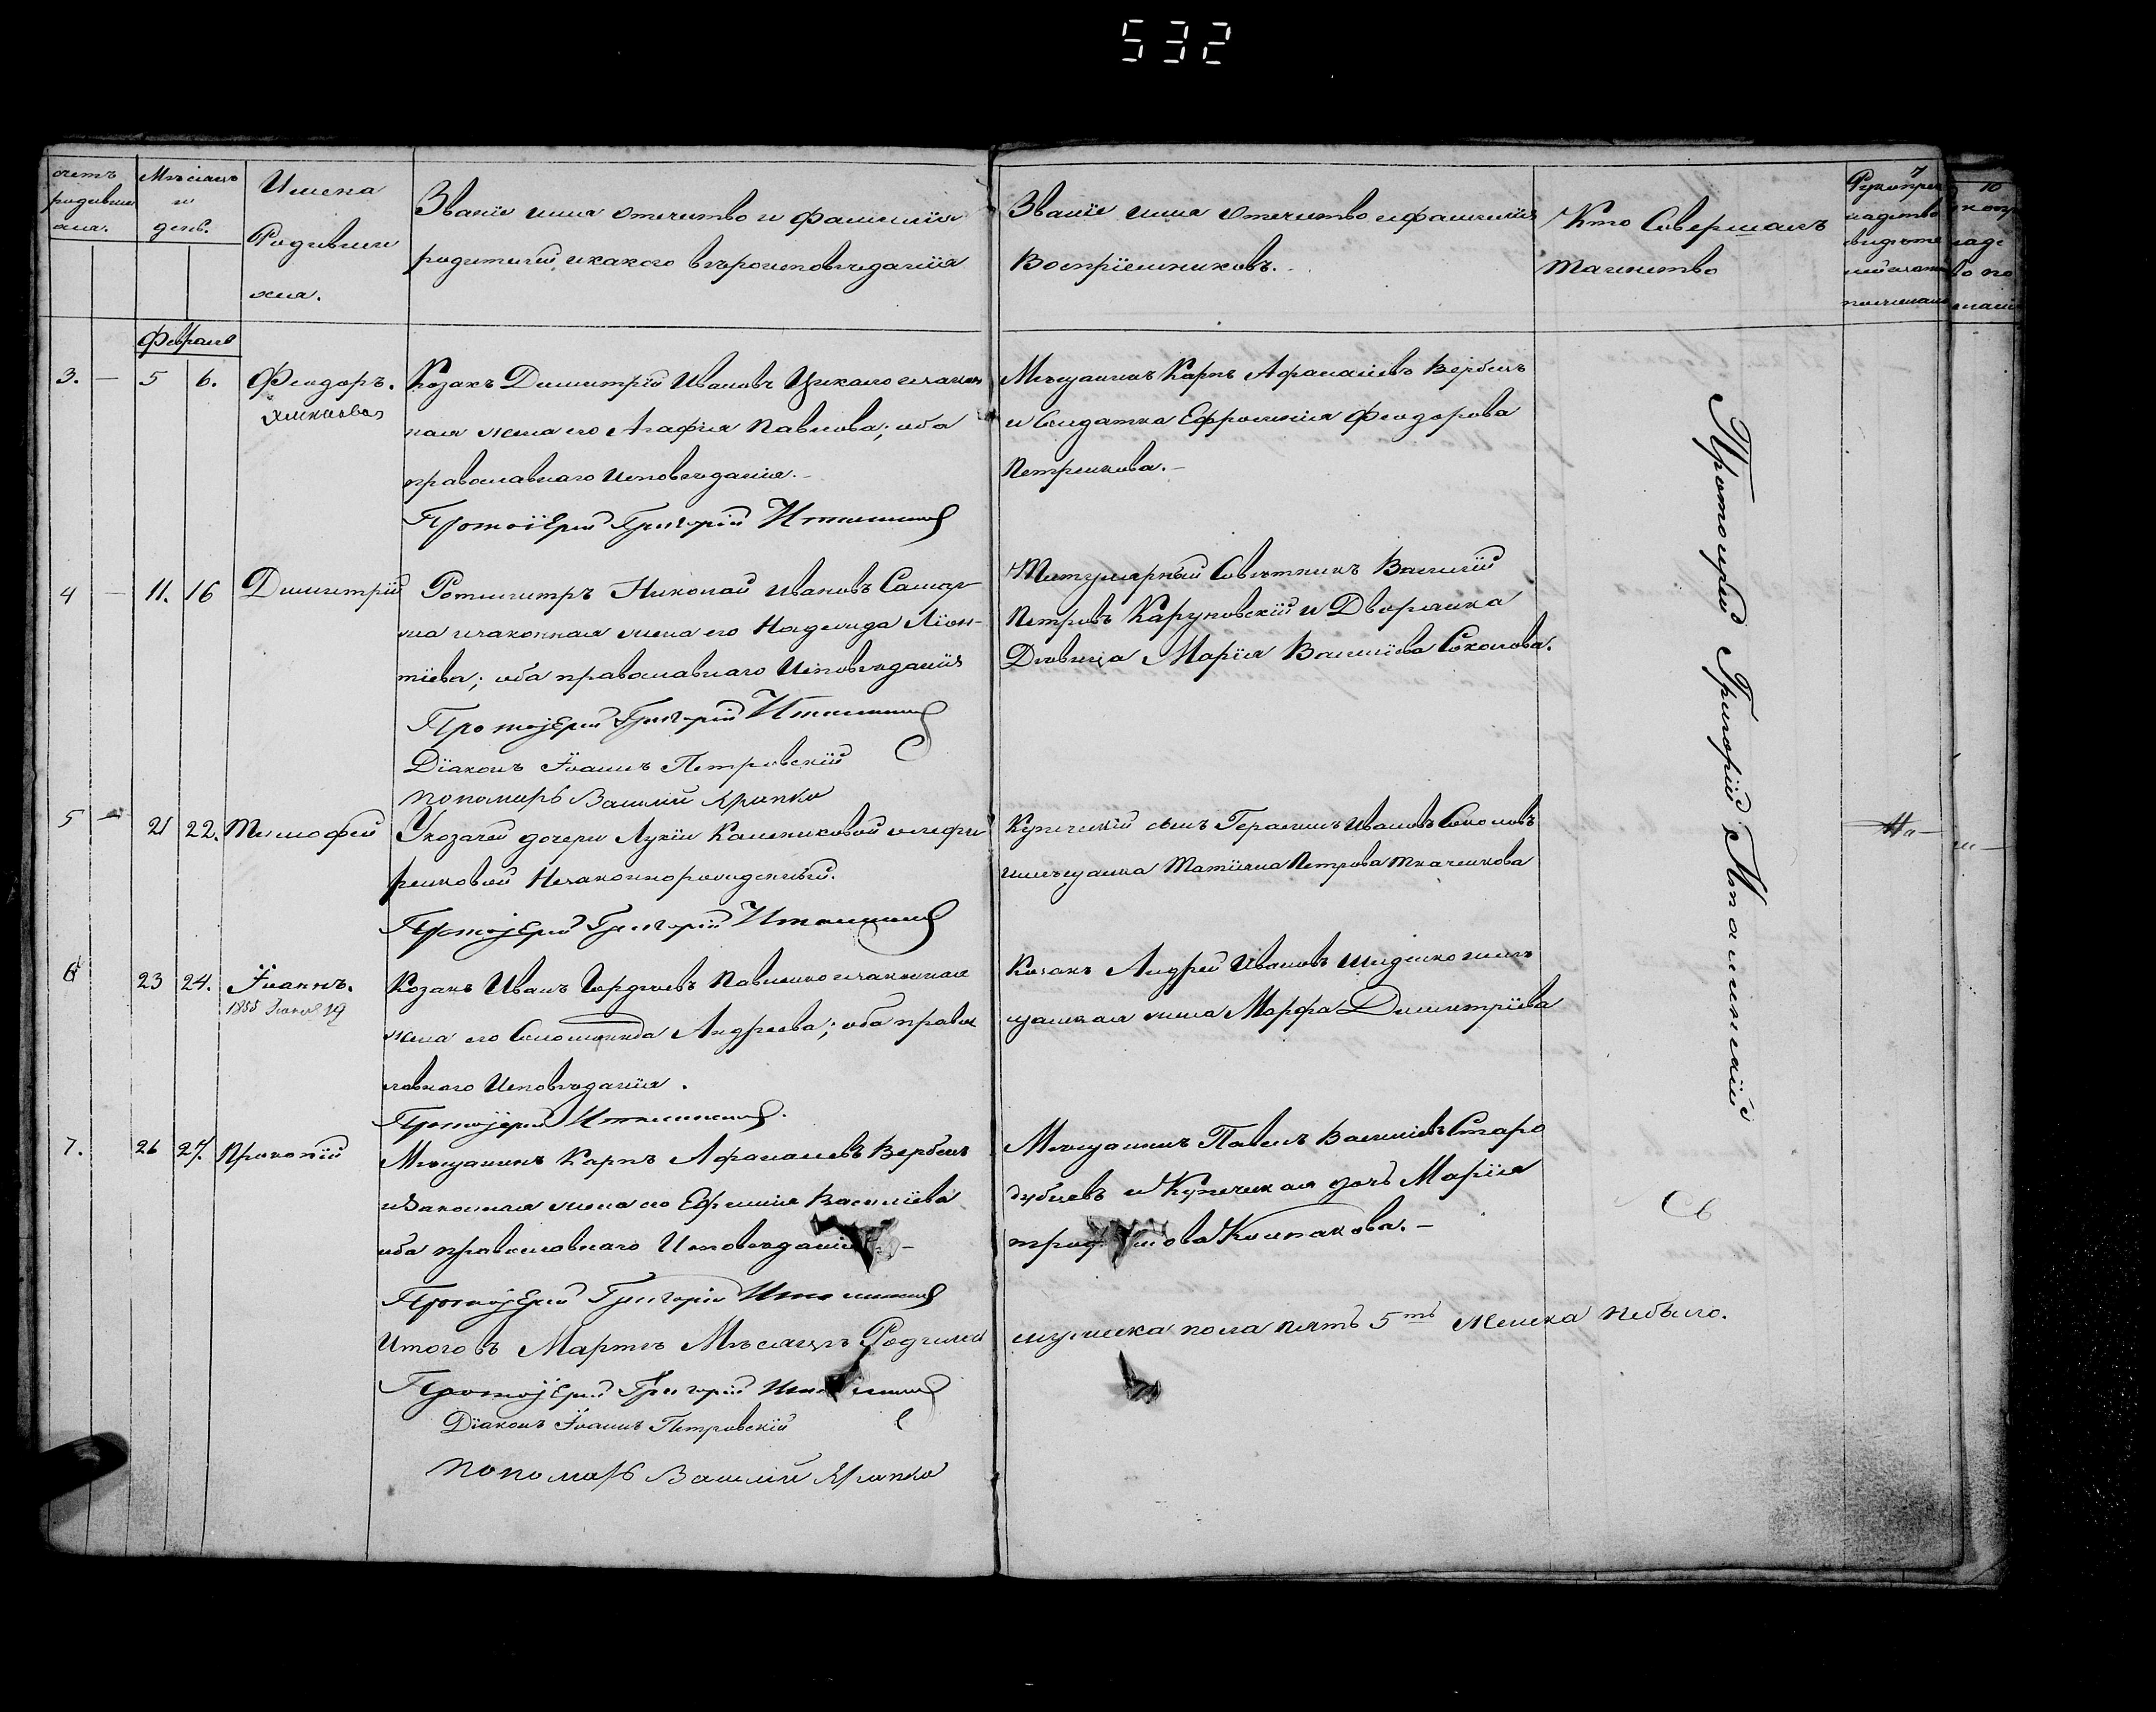 532
счетъ
родивши
хся.
Мѣсяцъ
и
день.
Имена
Родивши
хся.
Званіе имя отечество и фамилія
родителей, и какого вѣроисповѣданія
Званіе имя отечество и фамилія
Воспріемниковъ.
Кто Совершалъ
таинство
7
10
Февраль
3. — 5 6. Феодоръ.
Козакъ Димитрій Ивановъ и законн
ная жена его Агафія Павлова; оба
православнаго Исповѣданія.
Протоіерей Григорій
Мѣщанинъ Карпъ Афанасіевъ Вербецъ
и Солдатка Ефросинія Феодорова
Петренкова. —
4 — 11. 16 Димитрій
Ротмистръ Николай Ивановъ
и законная жена его Надежда Ліон-
тіева; оба православнаго Исповѣданія
Протоіерей Григорій
Діаконъ Іоаннъ Петровскій
пономарь Василій
Титулярный Совѣтникъ Василій
Петровъ Каруновскій и Дворянка
Дѣвица Марія Василіева Соколова.
5 — 21 22. Тимофей
Указачей дочери Лукіи
Незаконнорожденный.
Протоіерей Григорій
Купеческій сынъ Герасимъ Ивановъ Соколовъ
и мѣщанка Татіяна Петрова Ткаченкова
6 23 24. Іоаннъ.
1855 19
Козакъ Иванъ Гордіевъ Павленко и законная
жена его Соломонида Андреева; оба право
славнаго Исповѣданія.
Протоіерей
Козакъ Андрей Ивановъ и мѣ
щанская жена Марфа Димитріева
7. 26 27. Прокопій
Мѣщанинъ Карпъ Афанасіевъ Вербецъ
и Законная жена его Ефимія Василіева
оба православнаго Исповѣданія —
Протоіерей Григорій
Мѣщанинъ Павелъ Василіевъ Старо
дубцевъ и Купеческая дочь Марія
Колпакова. —
Итого въ Мартѣ Мѣсяцѣ Родилось
мужеска пола пять 5ть Женска небыло.
Протоіерей Григорій
Діаконъ Іоаннъ Петровскій
пономарь Василій
Протоіерей Григорій